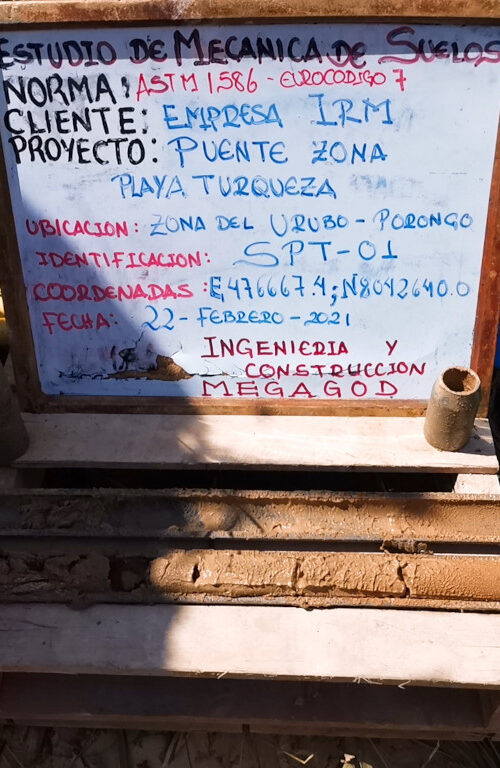 ESTUDIO DE MECANICA DE SUELOS
NORMA: ASTM 1586 - EUROCODIGO 7
CLIENTE: EMPRESA IRM
PROYECTO: PUENTE ZONA
PLAYA TURQUEZA
UBICACION: ZONA DEL URUBO - PORONGO
IDENTIFICACION: SPT-01
COORDENADAS: E,476667.4; N8042640.0
FECHA: 22 - FEBRERO - 2021
INGENIERIA Y
CONSTRUCCION
MEGAGOD